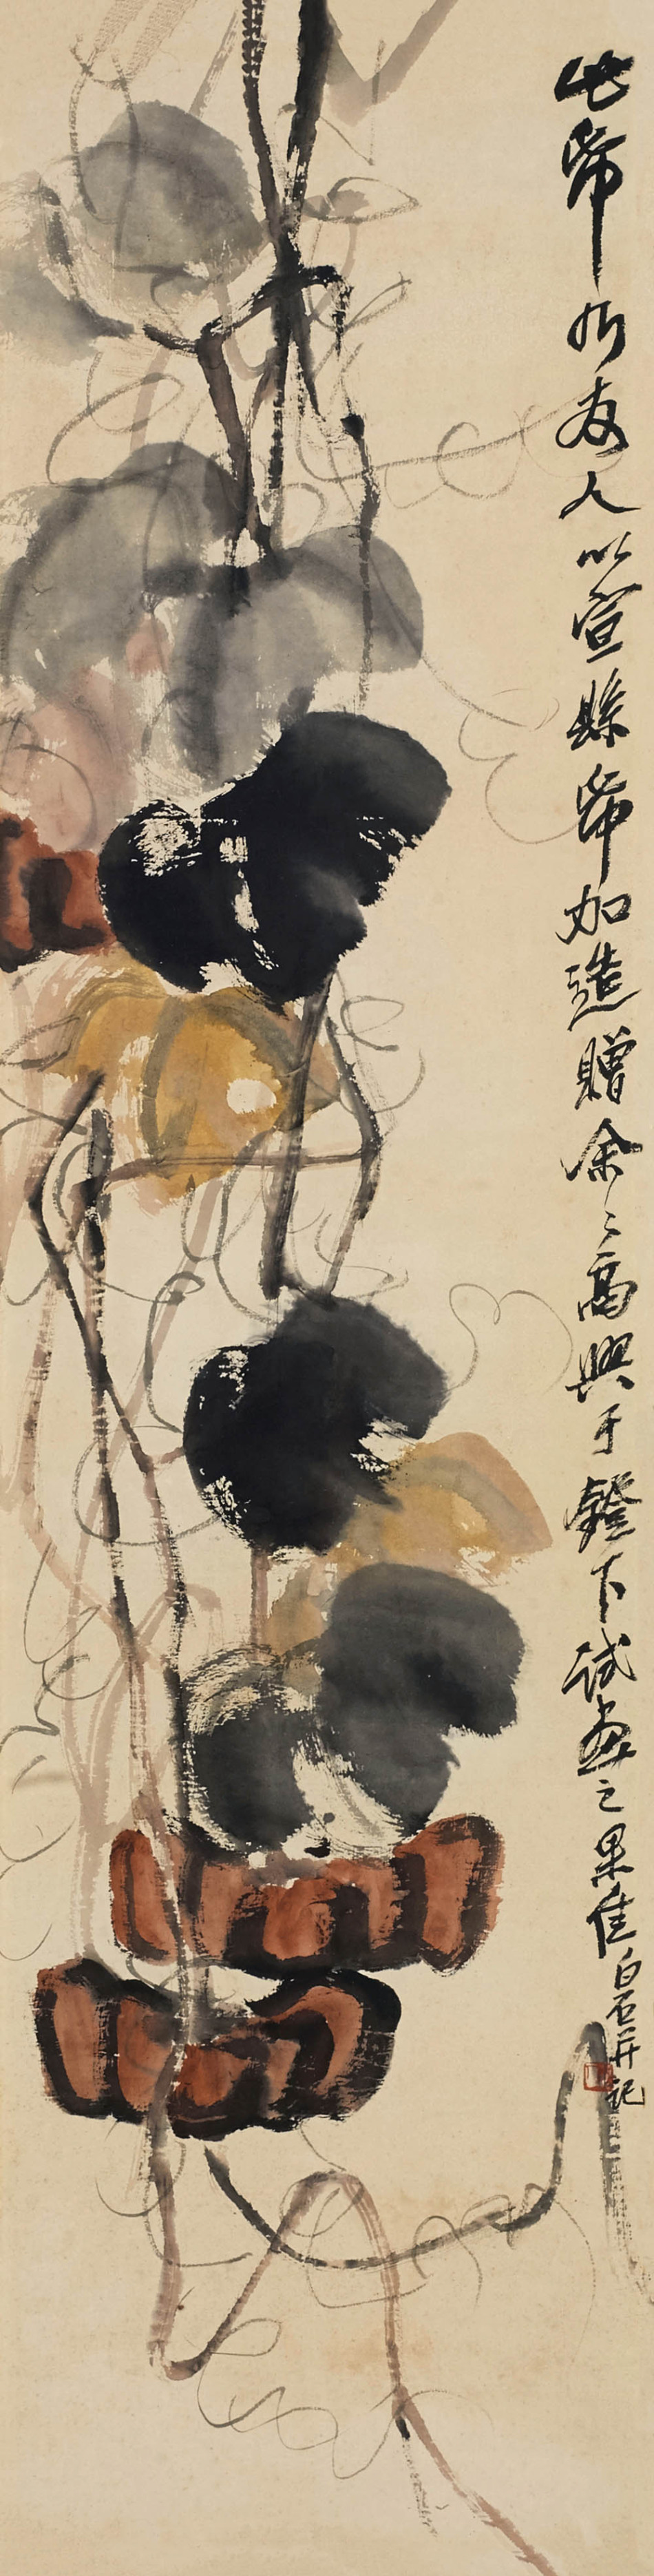 此帋乃友人以宣縣帋加造贈余々高興于鐙下试畫之果佳白石并记